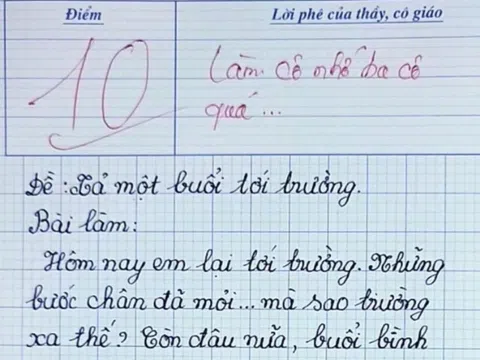 Điểm
Lời phê của thầy, cô giáo
10
Làm cô nhớ ba cô
quá...
Đề: Tả một buổi tới trường.
Bài làm:
Hôm nay em lại tới trường. Những
bước chân đã mỏi... mà sao trường
xa thế? Còn đâu nữa, buổi bình